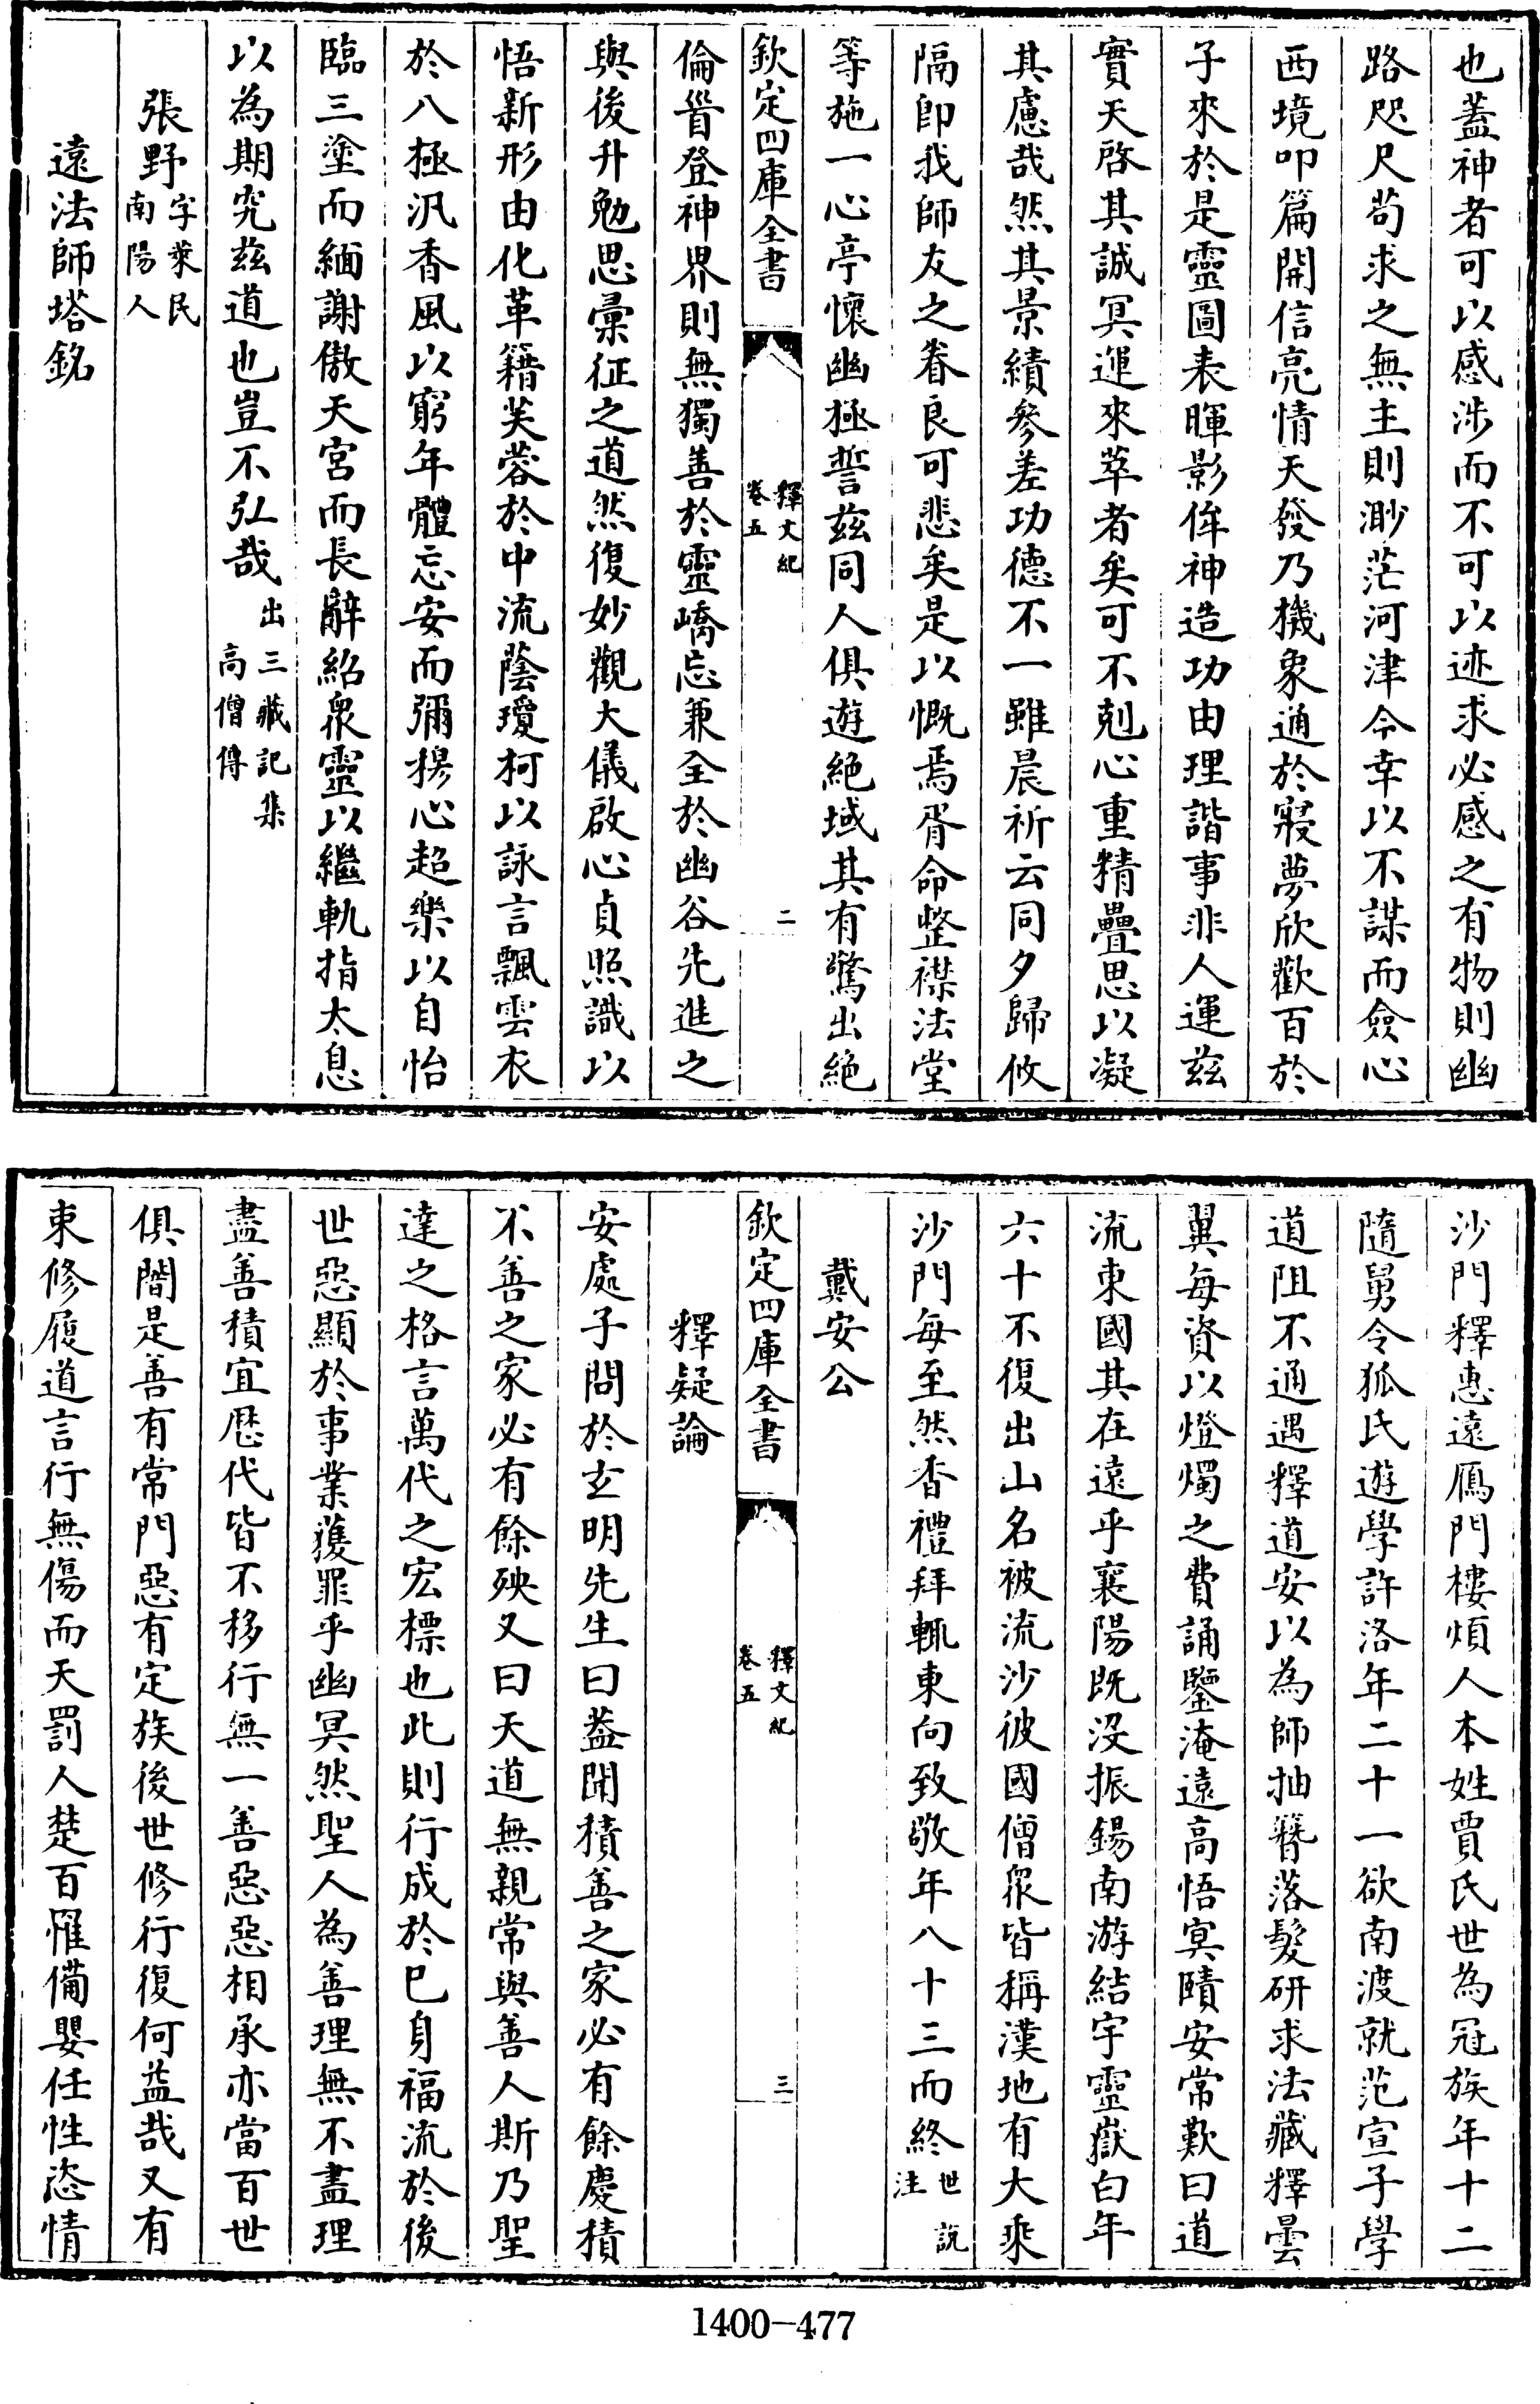 也蓋神者可以感涉而不可以迹求必感之有物則幽
路咫尺苟求之無主則渺茫河津今幸以不謀而僉心
西境叩篇開信亮情天發乃機象通於寢夢欣歡百於
子來於是靈圖表暉影侔神造功由理諧事非人運茲
實天啓其誠冥運來萃者矣可不剋心重精疊思以凝
其慮哉然其景績參差功德不一雖晨祈云同夕歸攸
隔卽我師友之眷良可悲矣是以慨焉胥命整襟法堂
等施一心亭懷幽極誓茲同人俱遊絶域其有驚出絶
欽定四庫全書
釋文紀
卷五
二
倫首登神界則無獨善於靈嶠忘兼全於幽谷先進之
與後升勉思彙征之道然復妙觀大儀啟心貞照識以
悟新形由化革籍芙蓉於中流蔭瓊柯以詠言飄雲衣
於八極汎香風以窮年體忘安而彌穆心超樂以自怡
臨三塗而緬謝傲天宮而長辭紹衆靈以繼軌指太息
以為期究茲道也豈不弘哉出三藏記集
高僧傳
張野字萊民
南陽人
遠法師塔銘
沙門釋惠遠鴈門樓煩人本姓賈氏世為冠族年十二
隨舅令狐氏遊學許洛年二十一欲南渡就范宣子學
道阻不通遇釋道安以為師抽簪落髮研求法藏釋曇
翼每資以燈燭之費誦鑒淹遠高悟冥賾安常歎曰道
流東國其在遠乎襄陽既没振錫南游結宇靈嶽白年
六十不復出山名被流沙彼國僧衆皆稱漢地有大乘
沙門每至然香禮拜輒東向致敬年八十三而終世說
注
戴安公
欽定四庫全書
釋文紀
卷五
三
釋疑論
安處子問於玄明先生曰葢聞積善之家必有餘慶積
不善之家必有餘殃又曰天道無親常與善人斯乃聖
達之格言萬代之宏標也此則行成於已身福流於後
世惡顯於事業獲罪乎幽冥然聖人為善理無不盡理
盡善積宜厯代皆不移行無一善惡惡相承亦當百世
俱闇是善有常門惡有定族後世修行復何益哉又有
束修履道言行無傷而天罰人楚百罹備嬰任性恣情
1400-477